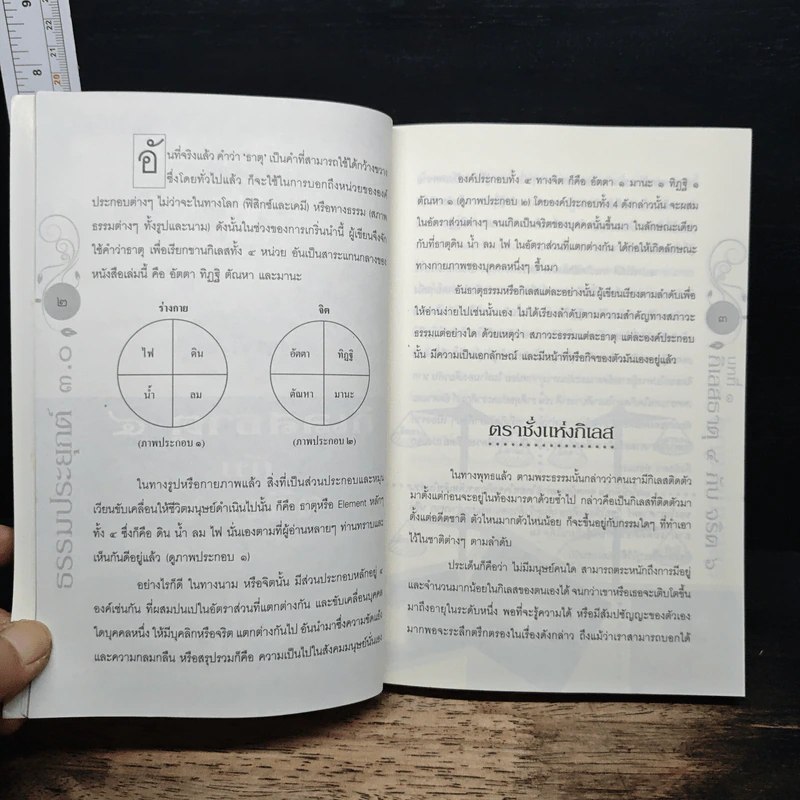 อันที่จริงแล้ว คำว่า 'ธาตุ' เป็นคำที่สามารถใช้ได้กว้างขวาง
ซึ่งโดยทั่วไปแล้ว ก็จะใช้ในการบอกถึงหน่วยขององค์
ประกอบต่างๆ ไม่ว่าจะในทางโลก (ฟิสิกซ์และเคมี) หรือทางธรรม (สภาพ
ธรรมต่างๆ ทั้งรูปและนาม) ดังนั้นในช่วงของการเกริ่นนำนี้ ผู้เขียนจึง
ใช้คำว่าธาตุ เพื่อเรียกขานกิเลสทั้ง ๔ หน่วย อันเป็นสาระแกนกลางของ
หนังสือเล่มนี้ คือ อัตตา ทิฏฐิ ตัณหา และมานะ
ร่างกาย
ไฟ ดิน
น้ำ ลม
(ภาพประกอบ ๑)
จิต
อัตตา ทิฏฐิ
ตัณหา มานะ
(ภาพประกอบ ๒)
ในทางรูปหรือกายภาพแล้ว สิ่งที่เป็นส่วนประกอบและหมุน
เวียนขับเคลื่อนให้ชีวิตมนุษย์ดำเนินไปนั้น ก็คือ ธาตุหรือ Element หลักๆ
ทั้ง ๔ ซึ่งก็คือ ดิน น้ำ ลม ไฟ นั่นเองตามที่ผู้อ่านหลายๆ ท่านทราบและ
เห็นกันดีอยู่แล้ว (ดูภาพประกอบ ๑)
อย่างไรก็ดี ในทางนาม หรือจิตนั้น มีส่วนประกอบหลักอยู่ ๔
องค์เช่นกัน ที่ผสมปนเปในอัตราส่วนที่แตกต่างกัน และขับเคลื่อนบุคคล
ใดบุคคลหนึ่ง ให้มีบุคลิกหรือจริต แตกต่างกันไป อันนำมาซึ่งความขัดแย้ง
และความกลมกลืน หรือสรุปรวมก็คือ ความเป็นไปในสังคมมนุษย์นั่นเอง
๒
ธรรมประยุกต์ ๓.๐
องค์ประกอบทั้ง ๔ ทางจิต ก็คือ อัตตา ๑ มานะ ๑ ทิฏฐิ ๑
ตัณหา ๑ (ดูภาพประกอบ ๒) โดยองค์ประกอบทั้ง 4 ดังกล่าวนั้น จะผสม
ในอัตราส่วนต่างๆ จนเกิดเป็นจริตของบุคคลนั้นขึ้นมา ในลักษณะเดียว
กับที่ธาตุดิน น้ำ ลม ไฟ ในอัตราที่แตกต่างกัน ได้ก่อให้เกิดลักษณะ
ทางกายภาพของบุคคลหนึ่งๆ ขึ้นมา
อันธาตุธรรมหรือกิเลสแต่ละอย่างนั้น ผู้เขียนเรียงตามลำดับเพื่อ
ให้อ่านง่ายไปเช่นนั้นเอง ไม่ได้เรียงลำดับตามความสำคัญทางสภาวะ
ธรรมแต่อย่างใด ด้วยเหตุว่า สภาวะธรรมแต่ละธาตุ แต่ละองค์ประกอบ
นั้น มีความเป็นเอกลักษณ์ และมีหน้าที่หรือกิจของตัวมันเองอยู่แล้ว
ตราชั่งแห่งกิเลส
ในทางพุทธแล้ว ตามพระธรรมนั้นกล่าวว่าคนเรามีกิเลสติดตัว
มาตั้งแต่ก่อนจะอยู่ในท้องมารดาด้วยซ้ำไป กล่าวคือเป็นกิเลสที่ติดตัวมา
ตั้งแต่อดีตชาติ ตัวไหนมากตัวไหนน้อย ก็จะขึ้นอยู่กับกรรมใดๆ ที่ทำเอา
ไว้ในชาติต่างๆ ตามลำดับ
ประเด็นก็คือว่า ไม่มีมนุษย์คนใด สามารถตระหนักถึงการมีอยู่
และจำนวนมากน้อยในกิเลสของตนเองได้ จนกว่าเขาหรือเธอจะเติบโตขึ้น
มาถึงอายุในระดับหนึ่ง พอที่จะรู้ความได้ หรือมีสัมปชัญญะของตัวเอง
มากพอจะระลึกตรึกตรองในเรื่องดังกล่าว ถึงแม้ว่าเราสามารถบอกได้
๓
บทที่ ๑
กิเลสธาตุ ๔ กับ จริต ๖